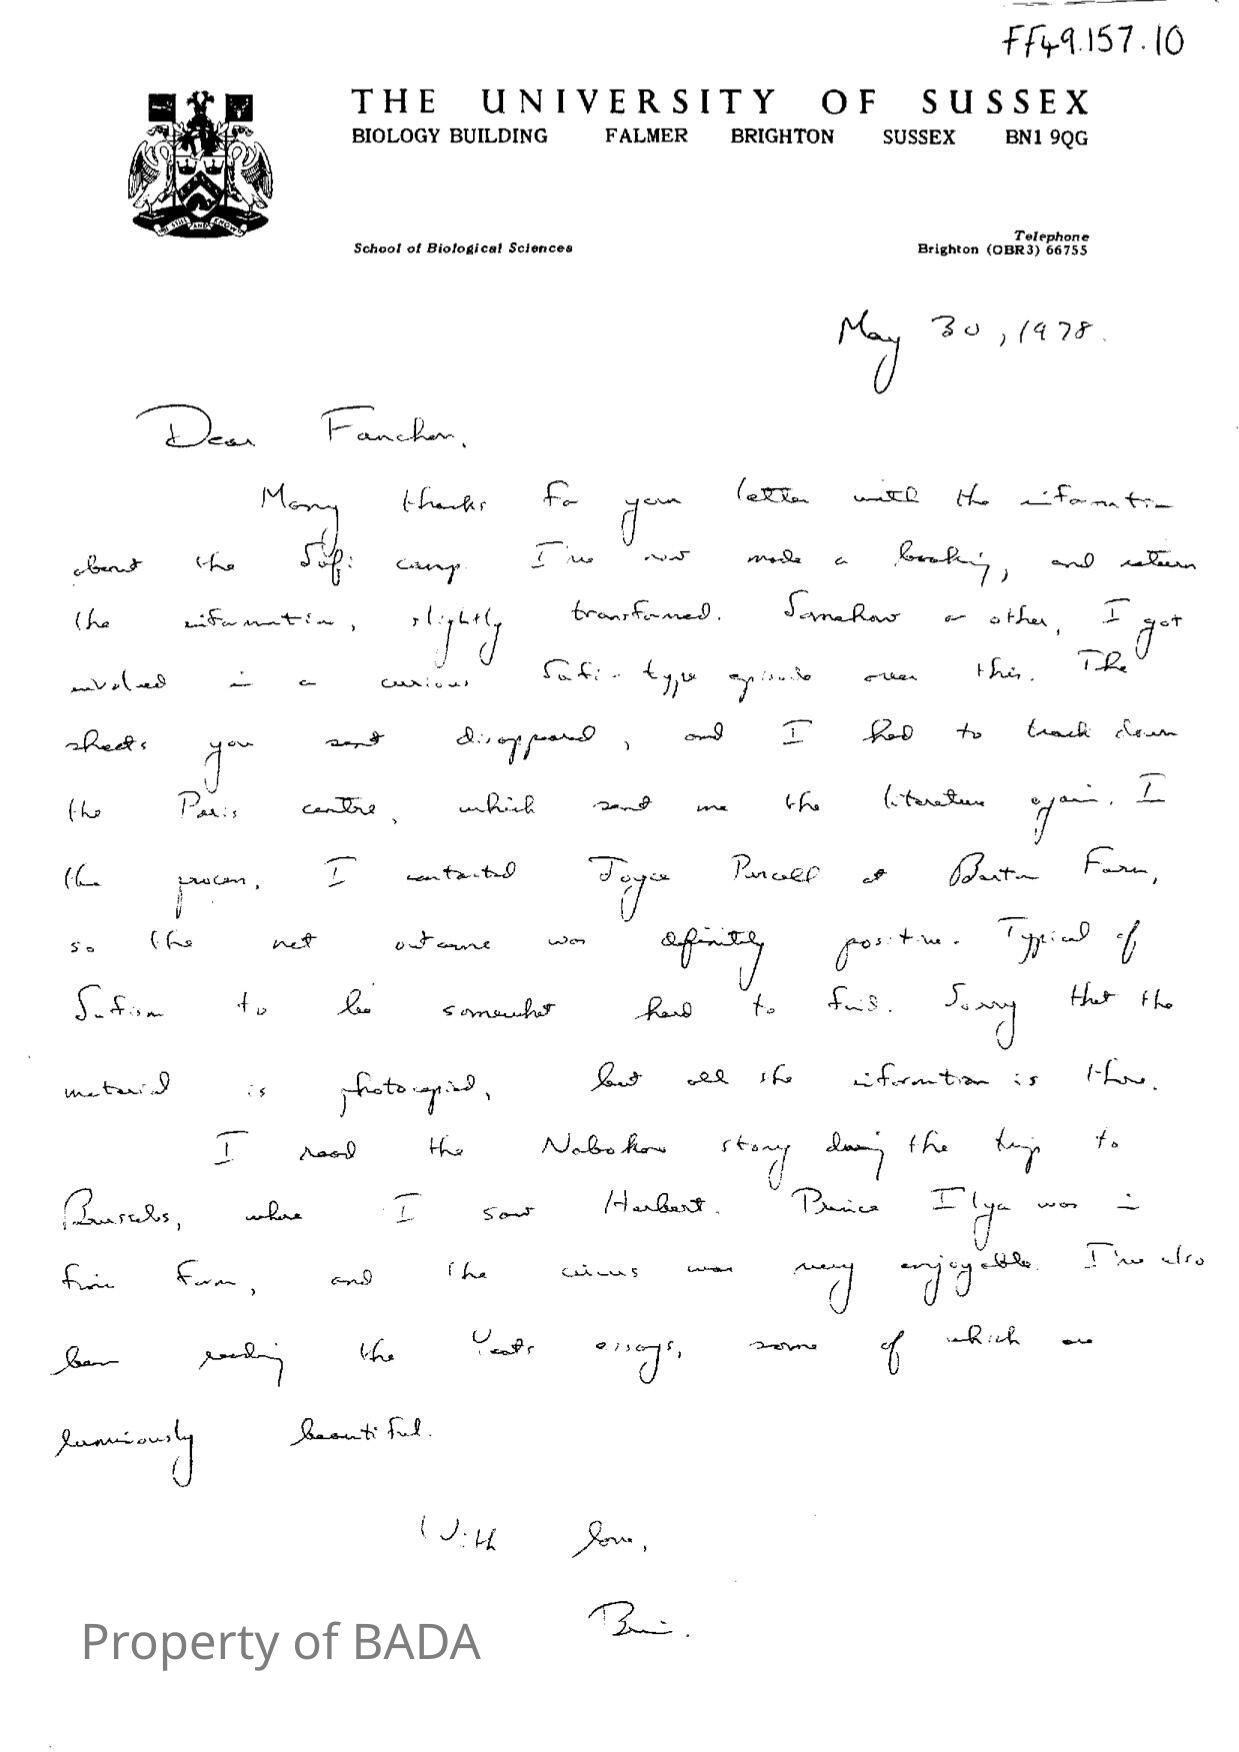 FF49.157.10
THE UNIVERSITY OF SUSSEX
BIOLOGY BUILDING FALMER BRIGHTON SUSSEX BN1 9QG
School of Biological Sciences
Telephone
Brighton (OBR3) 66755
May 30, 1978.
Dear Fanchon,
Many thanks for your letter with the information
about the Sufi camp. I've now made a booking, and return
the information, slightly transformed. Somehow or other, I got
involved in a curious Sufi-type episode over this. The
sheets you sent disappeared, and I had to track down
the Paris centre, which sent me the literature again. I
the process, I contacted Joyce Purcell at Barton Farm,
so the net outcome was definitely positive. Typical of
Sufism to be somewhat hard to find. Sorry that the
material is photocopied, but all the information is there.
I read the Nabokov story during the trip to
Brussels, where I saw Herbert. Prince Ilya was in
fine form, and the circus was very enjoyable. I've also
been reading the Yeats essays, some of which are
luminously beautiful.
With love,
Brian.
Property of BADA